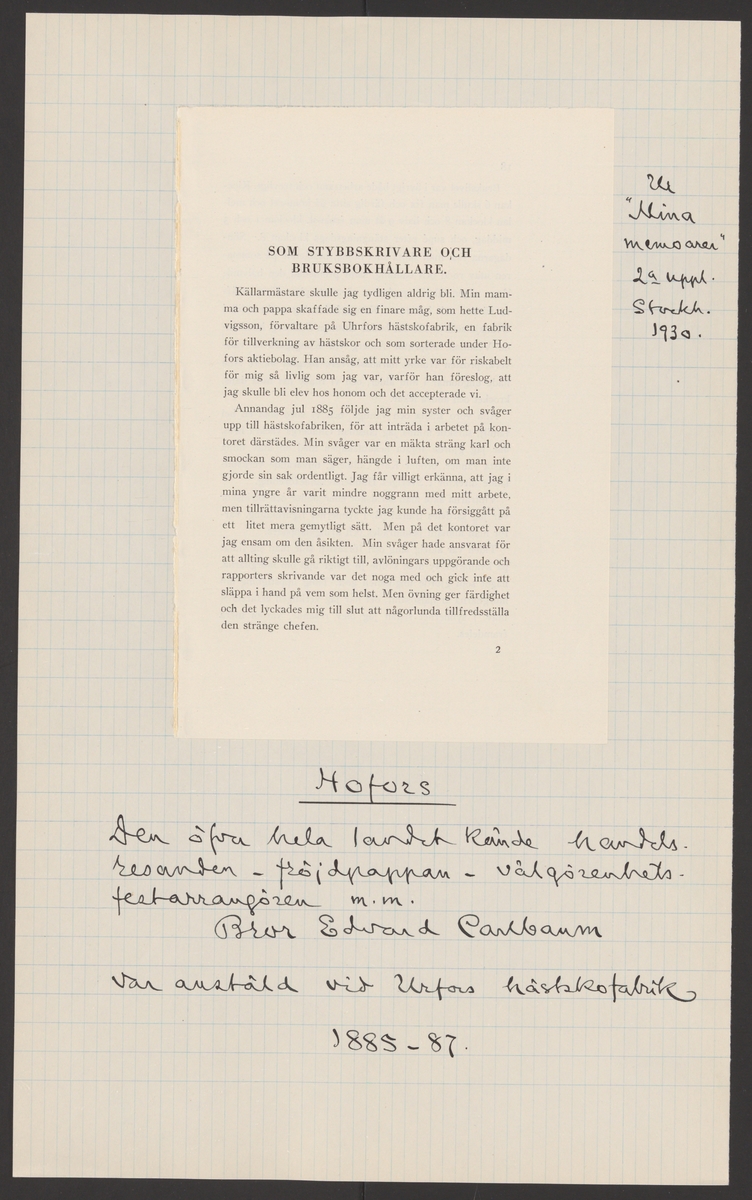 SOM STYBBSKRIVARE OCH
BRUKSBOKHÅLLARE.
Källarmästare skulle jag tydligen aldrig bli. Min mam-
ma och pappa skaffade sig en finare måg, som hette Lud-
vigsson, förvaltare på Uhrfors hästskofabrik, en fabrik
för tillverkning av hästskor och som sorterade under Ho-
fors aktiebolag. Han ansåg, att mitt yrke var för riskabelt
för mig så livlig som jag var, varför han föreslog, att
jag skulle bli elev hos honom och det accepterade vi.
Annandag jul 1885 följde jag min syster och svåger
upp till hästskofabriken, för att inträda i arbetet på kon-
toret därstädes. Min svåger var en mäkta sträng karl och
smockan som man säger, hängde i luften, om man inte
gjorde sin sak ordentligt. Jag får villigt erkänna, att jag i
mina yngre år varit mindre noggrann med mitt arbete,
men tillrättavisningarna tyckte jag kunde ha försiggått på
ett litet mera gemytligt sätt. Men på det kontoret var
jag ensam om den åsikten. Min svåger hade ansvarat för
att allting skulle gå riktigt till, avlöningars uppgörande och
rapporters skrivande var det noga med och gick inte att
släppa i hand på vem som helst. Men övning ger färdighet
och det lyckades mig till slut att någorlunda tillfredsställa
den stränge chefen.
2
Ur
"Mina
memoarer"
2a uppl.
Stockh.
1930.
Hofors
Den öfver hela landet kände handels-
resanden - fröjdpappan - välgörenhets-
festarrangören m.m.
Bror Edvard Carlbaum
var anstäld vid Urfors hästskofabrik
1885-87.